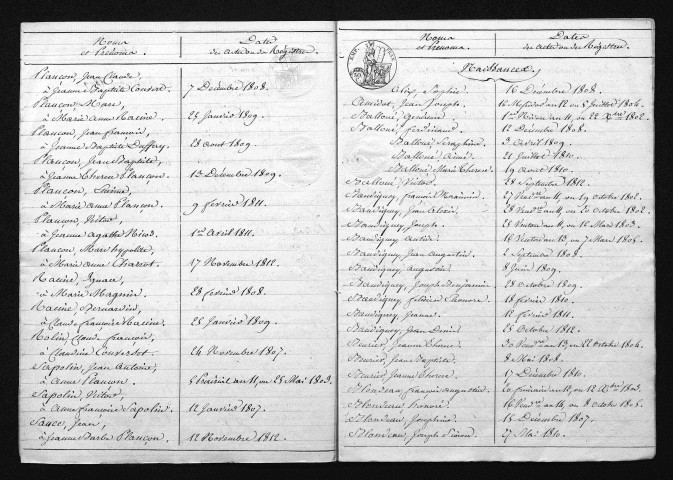 Noms et Prénoms.
Dates des actes ou du Registre
Plançon, Jean Claude,
à Jeanne Baptiste 7 Décembre 1808.
Plançon, Marc,
à Marie Anne Racine. 25 Janvier 1809.
Plançon, Jean François,
à Jeanne Baptiste 28 aout 1809.
Plançon, Jean Baptiste,
à Jeanne Therese Plançon. 13 Décembre 1809.
Plançon,
à Marie anne Plançon. 9 février 1811.
Plançon,
à Jeanne agathe 1er avril 1811.
Plançon, Marc hypolite,
à Marie anne 17 Novembre 1812.
Racine, Ignace,
à Marie Magnin. 28 février 1808.
Racine, Bernardin,
à Claude françoise Racine. 25 Janvier 1809.
Rolin, Claude françois,
à Claudine 24 Novembre 1807.
Sapolin, Jean Antoine,
à anne Plançon. 5 Prairial an 11, ou 25 Mai 1803.
Sapolin,
à anne françoise Sapolin. 12 Janvier 1807.
Sauce, Jean,
à Jeanne Barbe Plançon. 12 Novembre 1812.
Noms et Prénoms.
Dates des actes ou du Registre.
Naissances.
Alix, Sophie. 16 Décembre 1808.
Jean Joseph. 16 Messidor an 12 ou 5 Juillet 1804.
1er Nivose an 11, ou 22 Xbre 1802.
ferdinand. 12 Décembre 1808.
Seraphine. 3 avril 1809.
Aimé. 21 Juillet 1810.
Marie Therese. 19 aout 1810.
28 Septembre 1812.
Baudiquey, françois 27 Vend. an 11, ou 19 octobre 1802.
Baudiquey, 28 Vend. an 11, ou 20 Octobre 1802.
Baudiquey, Joseph. 21 Ventose an 11, ou 12 Mars 1803.
Baudiquey, 16 Ventose an 13, ou 7 Mars 1805.
Baudiquey, Jean Augustin. 2 Septembre 1808.
Baudiquey, 8 Juin 1809.
Baudiquey, Joseph Benjamin. 28 Octobre 1809.
Baudiquey, 18 février 1810.
Baudiquey, Jeanne. 12 février 1811.
Baudiquey, Jean Denis. 25 Octobre 1812.
Jeanne Therese. 30 Vend. an 13, ou 22 octobre 1804.
Jean Baptiste. 8 Mai 1808.
Jeanne Therese. 17 Décembre 1810.
Blondeau, françois augustin. 20 frimaire an 12, ou 12 Xbre 1803.
Blondeau, 16 Vend. an 14, ou 8 Octobre 1805.
Blondeau, Josephine. 15 Décembre 1807.
Blondeau, Joseph 27 Mai 1810.